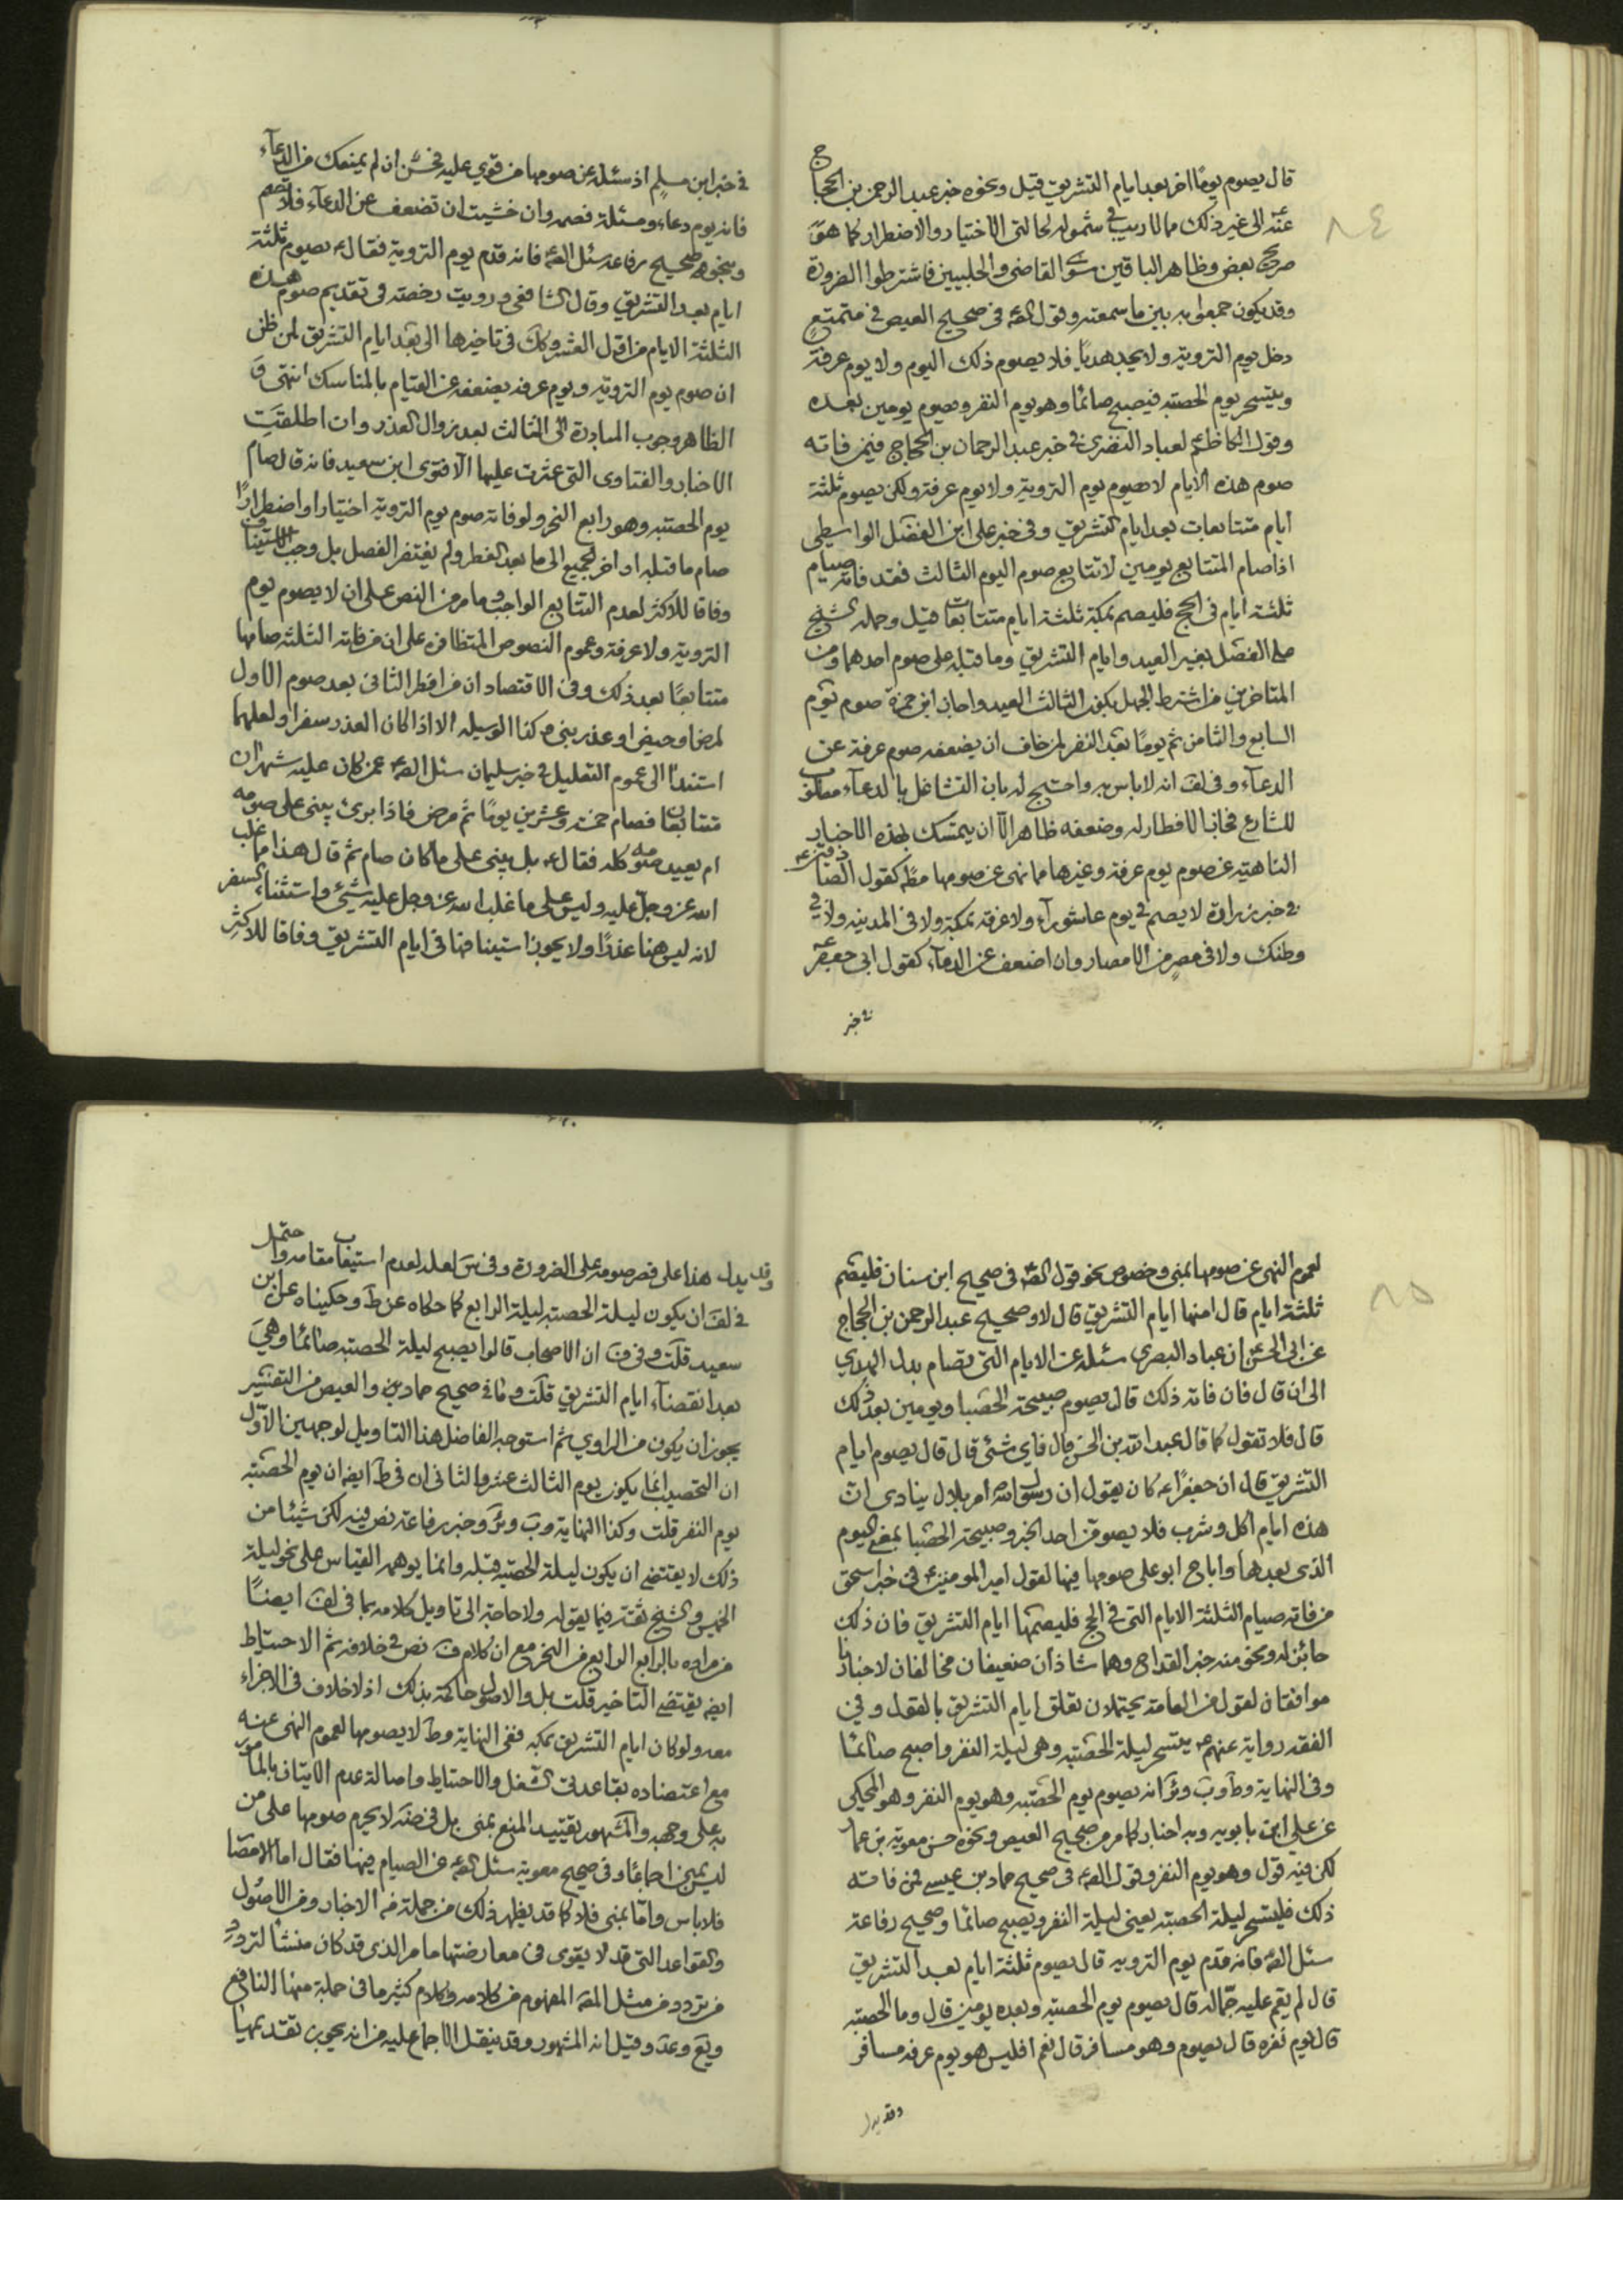 قال يصوم يومًا اخر بعد ايام التشريق قيل ونحوه خبر عبد الرحمن بن الحجاج
عنه الى غير ذلك مما لا ريب في شموله لحالتي الاختيار والاضطرار كما هو
صريح بعض وظاهر الباقين سوى القاضي والحلبيين فاشترطوا الضرورة
وقد يكون جمعوا به بين ما سمعته وقول الصه في صحيح العيص في متمتع
دخل يوم التروية ولا يجد هديًا فلا يصوم ذلك اليوم ولا يوم عرفة
ويتسحر يوم الحصبة فيصبح صائمًا وهو يوم النفر ويصوم يومين بعده
وقول الكاظم لعباد البصري في خبر عبد الرحمان بن الحجاج فيمن فاته
صوم هذه الايام لا يصوم يوم التروية ولا يوم عرفة ولكن يصوم ثلثة
ايام متتابعات بعد ايام التشريق وفي خبر علي ابن الفضل الواسطي
اذا صام المتتابع يومين لا تتابع صوم اليوم الثالث فقد فاته صيام
ثلثة ايام في الحج فليصم بمكة ثلثة ايام متتابعات قيل وحمله الشيخ
على الفصل بغير العيد وايام التشريق وما قبله على صوم احدهما ومن
المتاخرين من اشترط الجهل بكون الثالث العيد واجاز ابن حمزة صوم يوم
السابع والثامن ثم يومًا بعد النفر لمن خاف ان يضعفه صوم عرفة عن
الدعاء وفي لف انه لا باس به واحتج له بان التشاغل بالدعاء مطلوب
للشارع فجاز الافطار له وضعفه ظاهر الا ان يتمسك بهذه الاخبار
الناهية عن صوم يوم عرفة وغيرها مما نهى عن صومها مط كقول الصادقين
في خبر زرارة لا يصم في يوم عاشوراء ولا عرفة بمكة ولا في المدينة ولا في
وطنك ولا في مصر من الامصار وان اضعف عن الدعاء كقول ابي جعفر
في خبر
في خبر ابن مسلم اذ سئله عن صومها من قوي عليه فحسن ان لم يمنعك من الدعاء
فانه يوم دعاء ومسئلة فصمه وان خشيت ان تضعف عن الدعاء فلا تصم
وبنحوه صحيح رفاعة سئل الصه فانه قدم يوم التروية فقال يصوم ثلثة
ايام بعد التشريق وقال الشافعي ورويت رخصة في تقديم صوم هذه
الثلثة الايام من اول العشر وكك في تاخيرها الى بعد ايام التشريق لمن ظن
ان صوم يوم التروية ويوم عرفة يضعفه عن القيام بالمناسك انتهى و
الظاهر وجوب المبادرة الى الثالث بعد زوال العذر وان اطلقت
الاخبار والفتاوى التي عثرت عليها الا فتوى ابن سعيد فانه قال صام
يوم الحصبة وهو رابع النحر ولو فاته صوم يوم التروية اختيارا او اضطرارًا
صام ما قبله او اخر الجميع الى ما بعد الفطر ولم يغتفر الفصل بل وجب الاستيناف
وفاقا للاكثر لعدم التتابع الواجب وما مر من النص على ان لا يصوم يوم
التروية ولا عرفة وعموم النصوص المتظافرة على ان من فاته الثلثة صامها
متتابعًا بعد ذلك وفي الاقتصاد ان من افطر الثاني بعد صوم الاول
لمرض او حيض او عذر بنى وكذا الوسيله الا اذا كان العذر سفرا ولعلهما
استندا الى عموم التعليل في خبر سليمان سئل الصه عمن كان عليه شهران
متتابعان فصام خمسة وعشرين يومًا ثم مرض فاذا برئ يبني على صومه
ام يعيد صومه كله فقال بل يبني على ما كان صام ثم قال هذا مما غلب
الله عز وجل عليه وليس على ما غلب الله عز وجل عليه شيئ واستثناء السفر
لانه ليس هنا عذرًا ولا يجوز استينافها في ايام التشريق وفاقا للاكثر
لعموم النهي عن صومها بمنى وخصوص نحو قول الصه في صحيح ابن سنان فليصم
ثلثة ايام قال امنها ايام التشريق قال لا وصحيح عبد الرحمن بن الحجاج
عن ابي الحسن ان عباد البصري سئله عن الايام التي تصام بدل الهدي
الى ان قال فان فاته ذلك قال يصوم صبيحة الحصبا ويومين بعد ذلك
قال فلا تقول كما قال عبد الله بن الحسن قال فاي شئ قال قال يصوم ايام
التشريق قال ان جعفرًا كان يقول ان رسول الله امر بلال ينادى ان
هذه ايام اكل وشرب فلا يصومن احد الخبر وصبيحة الحصبا بمعنى اليوم
الذي بعدها واباح ابو علي صومها فيها لقول امير المومنين في خبر اسحق
من فاته صيام الثلثة الايام التي في الحج فليصمها ايام التشريق فان ذلك
جائز له ونحو منه خبر القداح وهما شاذان ضعيفان مخالفان لاخبارنا
موافقان لقول من العامة يحتملان تعلق ايام التشريق بالقول وفي
الفقه رواية عنهم يتسحر ليلة الحصبة وهي ليلة النفر واصبح صائمًا
وفي النهاية وط وب وئر انه يصوم يوم الحصبة وهو يوم النفر وهو المحكي
عن علي ابن بابويه وبه اخبار كما مر من صحيح العيص ونحوه حسن معوية بن عمار
لكن فيه قول وهو يوم النفر وقول الصه في صحيح حماد بن عيسى فمن فاته
ذلك فليتسحر ليلة الحصبة يعني ليلة النفر ويصبح صائمًا وصحيح رفاعة
سئل الصه فانه قدم يوم التروية قال يصوم ثلثة ايام بعد التشريق
قال لم يقم عليه جماله قال يصوم يوم الحصبة وبعده يومين قال وما الحصبة
قال يوم نفره قال يصوم وهو مسافر قال نعم افليس هو يوم عرفة مسافر
وقد يدل
وقد يدل هذا على قصر صومه على الضرورة وفي س لعله لعدم استيعاب مقامه واحتمل
في لف ان يكون ليلة الحصبة ليلة الرابع كما حكاه عن ط وحكيناه عن ابن
سعيد قلت وفي ف ان الاصحاب قالوا يصبح ليلة الحصبة صائمًا وهي
بعد انقضاء ايام التشريق قلت وما في صحيح حماد بن والعيص من التفسير
يجوز ان يكون من الراوي ثم استوجه الفاضل هذا التاويل لوجهين الاول
ان التحصيب انما يكون يوم الثالث عشر والثاني ان في ط ايضه ان يوم الحصبة
يوم النفر قلت وكذا النهاية وب وئر وخبر رفاعة نص فيه لكن شيئا من
ذلك لا يقتضي ان يكون ليلة الحصبة قبله وانما يوهمه القياس على نحو ليلة
الخميس والشيخ ثقة فيما يقوله ولا حاجة الى تاويل كلامه بما في لف ايضًا
من مراده بالرابع الرابع من النحر مع ان كلام ف نص في خلافه ثم الاحتياط
ايضه يقتضي التاخير قلت بل والاصول حاكمة بذلك اذ لا خلاف في الاجزاء
معه ولو كان ايام التشريق بمكة ففي النهاية وط لا يصومها لعموم النهي عنه
مع اعتضاده بقاعدتي الشغل والاحتياط واصالة عدم الاتيان بالمامور
به على وجهه والمشهور تقييد المنع بمنى بل في ضه لا يحرم صومها على من
ليس بمنى اجماعًا وفي صحيح معوية سئل الصه عن الصيام فيها فقال اما الامصا
فلا باس واما بمنى فلا كما قد يظهر ذلك من جملة من الاخبار ومن الاصول
والقواعد التي قد لا يقوى في معارضتها ما مر الذي قد كان منشأ لتردد
من تردد من مثل المصه المفهوم من كلامه وكلام كثير ما في جملة منها النافع
ويع وعد وقيل انه المشهور وقد ينقل الاجماع عليه من انه يجوز تقديمها